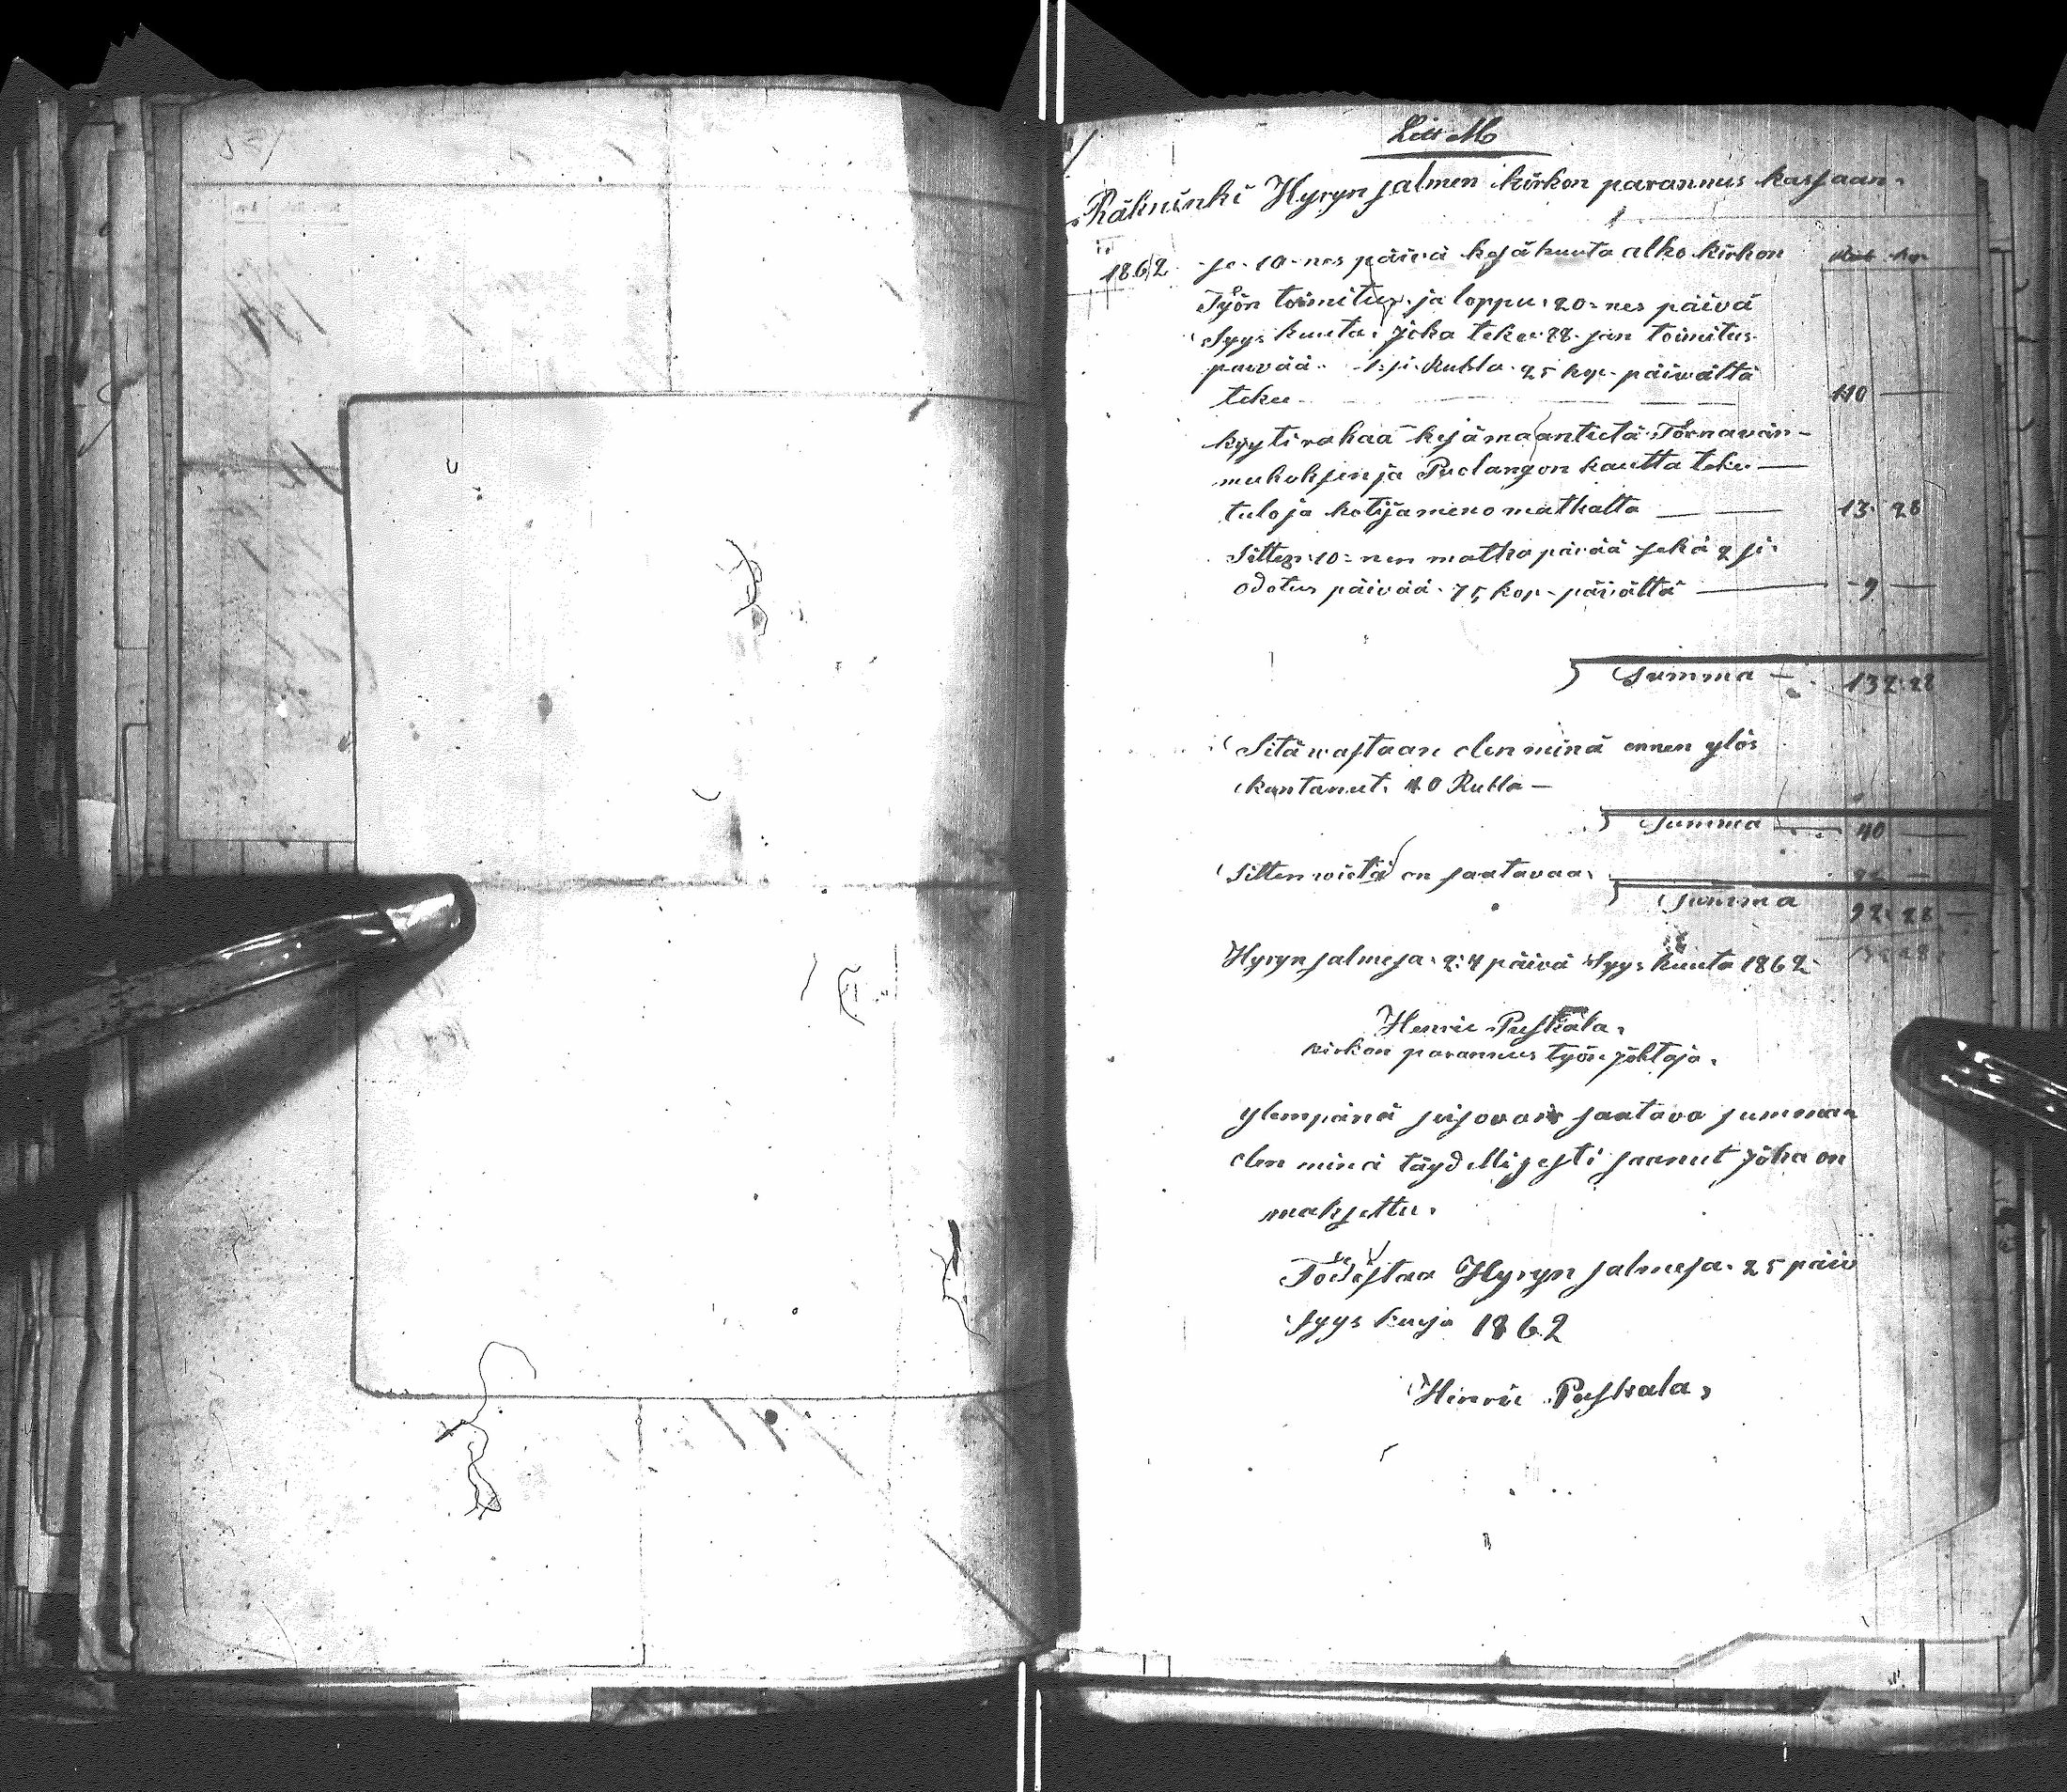 Litt M
Räkninki Hyrynsalmen kirkon parannus kassaan.
1862 se 10-nes päivä kesäkuuta alko kirkon
Työn toimitus ja loppu 20=nes päivä
Syys kuuta, joka teke 88-san toimitus
päivää. 1 si Rubla 25 kop. päivältä
tekee 110 —
kyytirahaa kesämaantietä Törnävän-
muhoksen ja Puolangon kautta teke —
tulo ja kotija meno matkalta — 13. 28
Sitten 10=nen matkapäivää sekä 2 si
odotus päivää 75 kop-päivältä — 9 —
Summa — 132.28
Sitä wastaan olen minä ennen ylös
kantanut. 40 Rubla —
Summa — 40 —
Sitten wielä on saatavaa.
Summa 92.28 —
Hyrynsalmesa. 24 päivä Syys kuuta 1862
Henric Puskala.
kirkon parannus työn johtaja.
ylempänä seisovan saatava summan
olen minä täydellisesti saanut joka on
maksettu.
Todistaa Hyryn salmesa. 25 päiv
Syys kuusa 1862
Hinric Puskala,